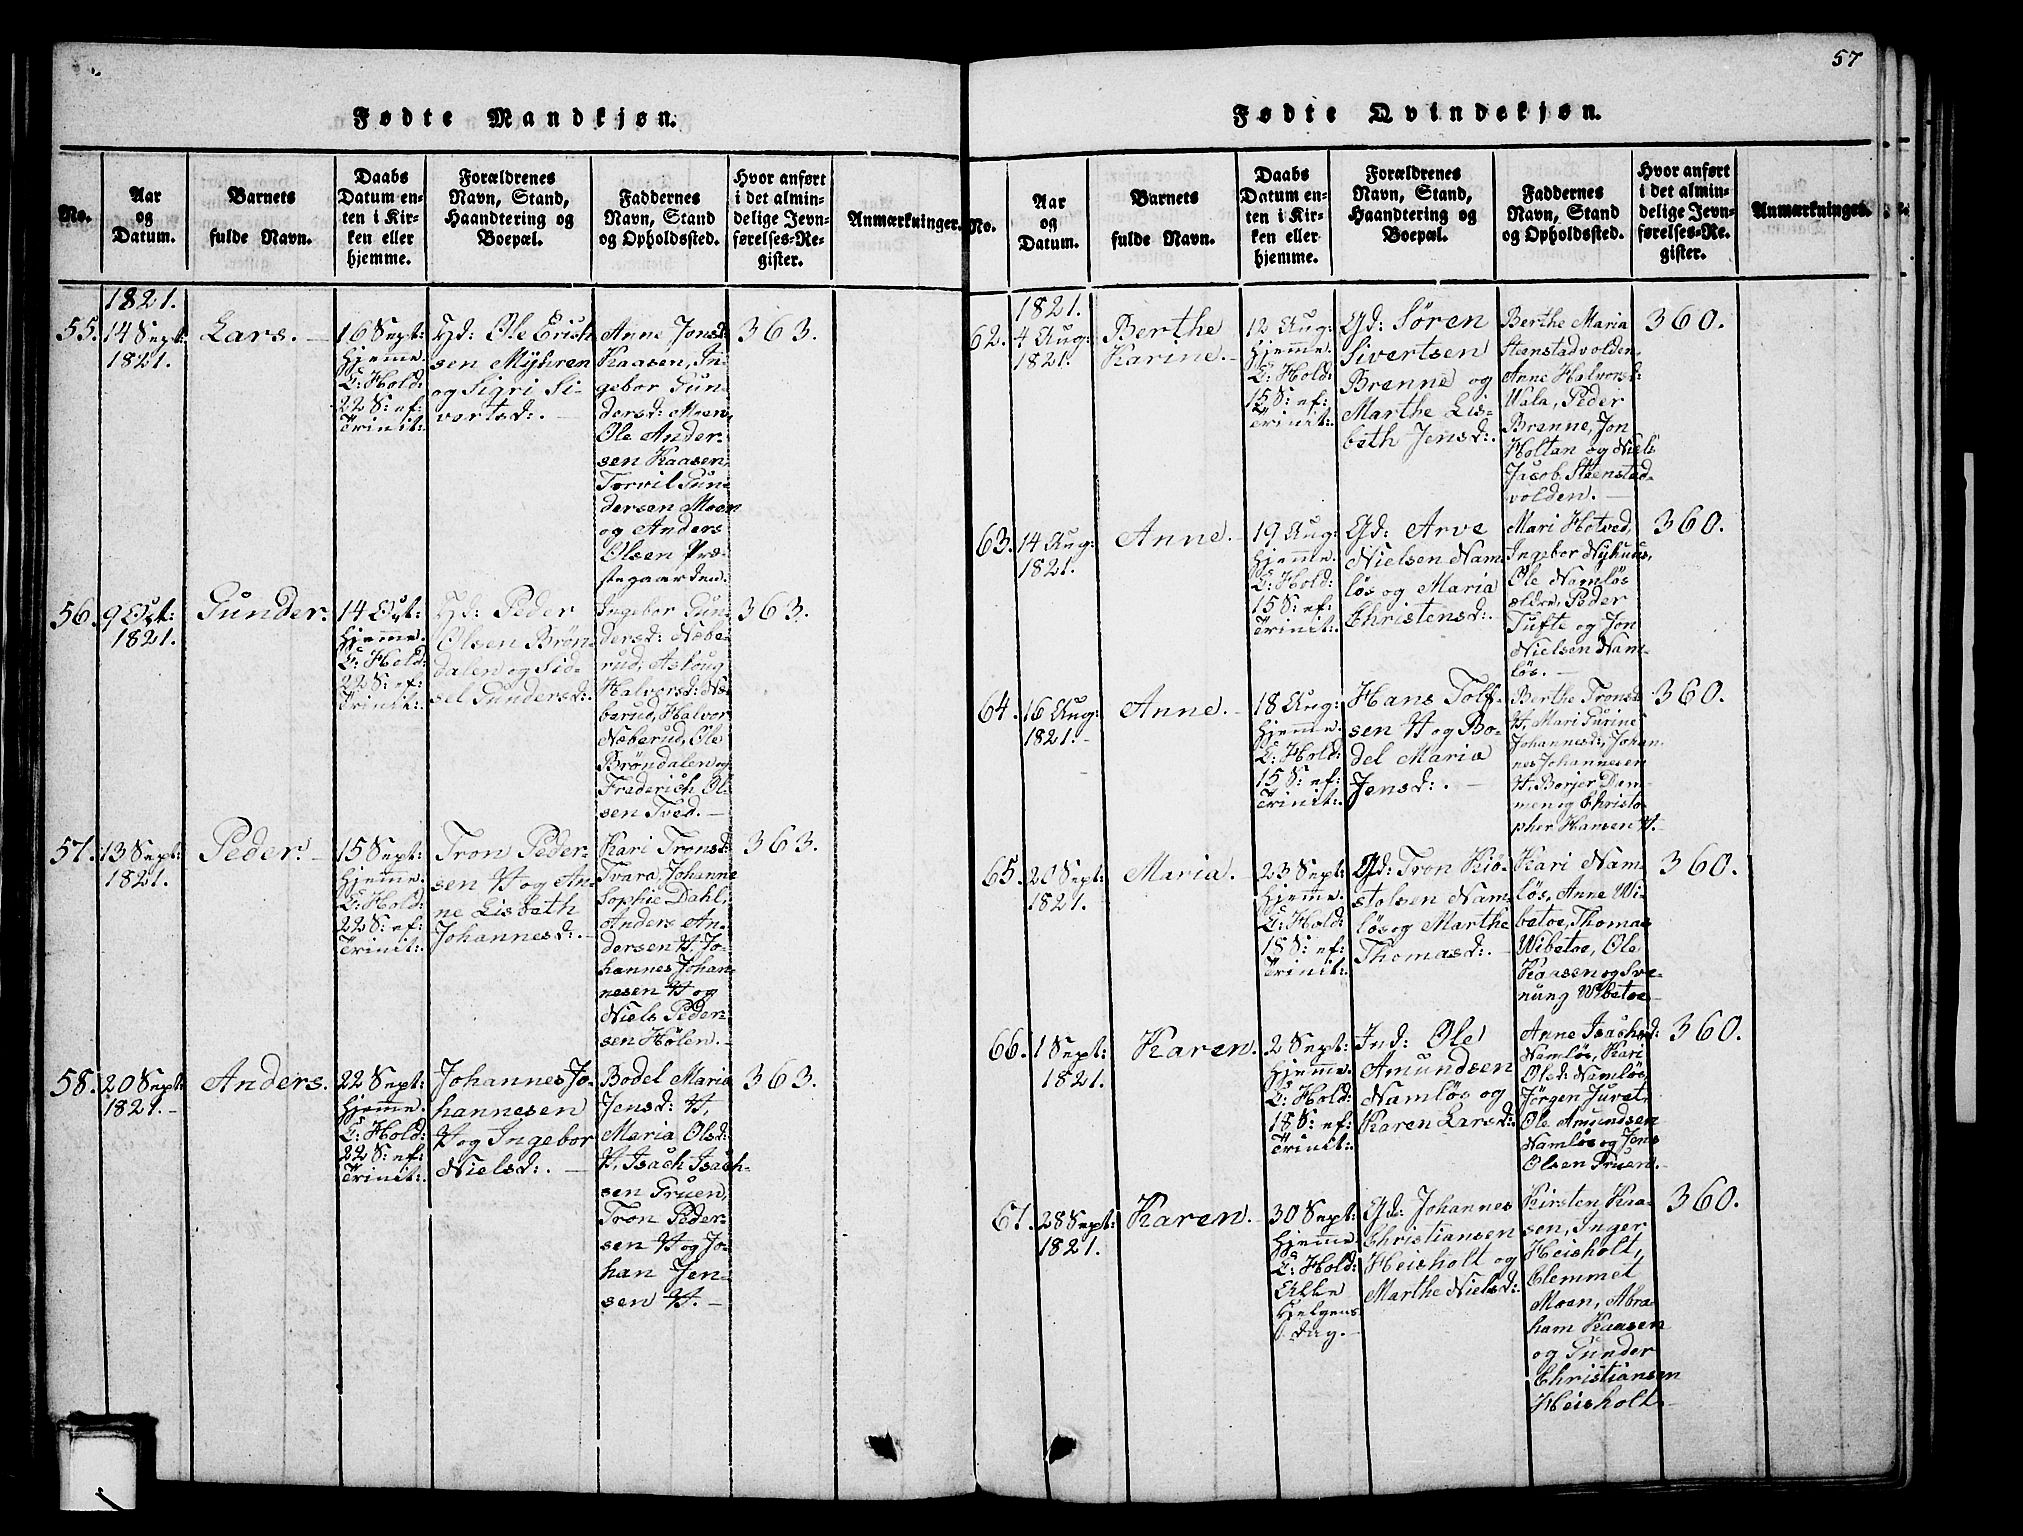 57
Fødte Mandkjøn.
No.
Aar
og
Datum.
Barnets
fulde Navn.
Daabs
Datum en-
ten i Kir-
ken eller
hjemme.
Forældrenes
Navn, Stand,
Haandtering og
Boepæl.
Faddernes
Navn, Stand
og Opholdssted.
Hvor anført
i det almin-
delige Jevn-
førelses-Re-
gister.
Anmærkninger.
1821.
55.
14 Sept:
1821.
Lars.
16 Sept:
Hjemme.
E: Hold:
22 S: ef:
Trinit:
Gd: Ole Erich
sen Myhren
og Sigri Si-
vertsd:. –
Anne Jonsd:
Kaasen, In-
gebor Gun-
dersd: Moen,
Ole Ander-
sen Kaasen,
Torvil Gun-
dersen Moen
og Anders
Olsen Præ-
stegaarden.
363.
56.
9 Oct:
1821.
Gunder.
14 Oct:
Hjemme.
E: Hold:
22 S: ef:
Trinit:.
Hd: Peder
Olsen Brön-
dalen og Sid-
sel Gundersd:
Ingebor Gun-
dersd: Næbe-
rud, Asloug
Halvorsd: Næ-
berud, Halvor
Næberud, Ole
Bröndalen og
Frederich Ol-
sen Tved. –
363.
57.
13 Sept:
1821.
Peder. –
15 Sept:
Hjemme.
E: Hold:
22 S: ef:
Trinit:.
Tron Peder-
sen V og An-
ne Lisbeth
Johannesd:. –
Kari Tronsd:
Tvara, Johanne
Sophie Dahl,
Anders An-
dersen V, Jo-
hannes Johan-
nesen V og
Niels Peder-
sen Hölen. –
363.
58.
20 Sept:
1821. –
Anders.
22 Sept:
Hjemme.
E: Hold:
22 S: ef:
Trinit:.
Johannes Jo-
hannesen
V og Ingebor
Nielsd:. –
Bodel Maria
Jensd: V,
Maria Olsd:
V, Isach Isach-
sen Gruen,
Tron Peder-
sen V og Jo-
han Jen-
sen V. –
363.
Fødte Qvindekjøn.
No.
Aar
og
Datum.
Barnets
fulde Navn.
Daabs
Datum en-
ten i Kir-
ken eller
hjemme.
Forældrenes
Navn, Stand,
Haandtering og
Boepæl.
Faddernes
Navn, Stand
og Opholdssted.
Hvor anført
i det almin-
delige Jevn-
førelses-Re-
gister.
Anmærkninger.
1821.
62.
4 Aug:
1821.
Berthe
Karine. –
12 Aug:
Hjemme.
E: Hold:
15 S: ef:
Trinit:.
Gd: Sören
Sivertsen
Brenne og
Marthe Lis-
beth Jensd:.
Berthe Maria
Steenstadvolden,
Anne Halvorsd:
Vala, Peder
Brenne, Jon
Holtan og Niels
Jacob Steenstad-
volden. –
360.
63.
14 Aug:
1821.
Anne. –
19 Aug:
Hjemme.
E: Hold:
15 S: ef:
Trinit:.
Gd: Arve
Nielsen Nam-
lös og Maria
Christensd:.
Mari Hotved,
Ingebor Nyhuus,
Ole Namlös
ældre, Peder
Tufte og Jon
Nielsen Nam-
lös. –
360.
64.
16 Aug:
1821. –
Anne. –
18 Aug:
Hjemme.
E: Hold:
15 S: ef:
Trinit:.
Hans Tolf-
sen V og Bo-
del Maria
Jensd:. –
Berthe Tronsd:
V, Mari Gurine
Johannesd:, Johan-
nes Johannesen
V, Borjer Dam-
men og Christo-
pher Hansen V. –
360.
65.
20 Sept:
1821.
Maria.
23 Sept:
Hjemme.
E: Hold:
18 S: ef:
Trinit:.
Gd: Tron Kit-
stolsen Nam-
lös og Marthe
Thomasd:. –
Kari Nam-
lös, Anne Wi-
betoe, Thomas
Wibetoe, Ole
Kaasen og Sve-
nung Wibetoe –
360.
66.
1 Sept:
1821.
Karen.
2 Sept:
Hjemme.
E: Hold:
18 S: ef:
Trinit:
Ind: Ole
Amundsen
Namlös og
Karen Larsd:
Anne Isachsd:
Namlös, Kari
Olsd: Namlös,
Jörgen Juvet,
Ole Amundsen
Namlös og Jens
Olsen Gruen. –
360.
67.
28 Sept:
1821.
Karen. –
30 Sept:
Hjemme.
E: Hold:
Alle
Helgens
Dag. –
Gd: Johannes
Christiansen
Heisholt og
Marthe Nielsd:
Kirsten Kaa-
sen, Inger
Heisholt,
Clemmet
Moen, Abra-
ham Kaasen
og Gunder
Christiansen
Heisholt. –
360.